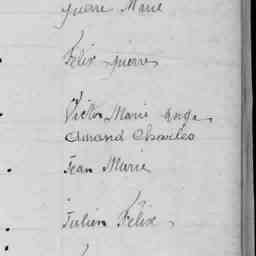 pierre Marie
Félix pierre
Victor Marie ange
Amand Charles
Jean Marie
Julien Félix